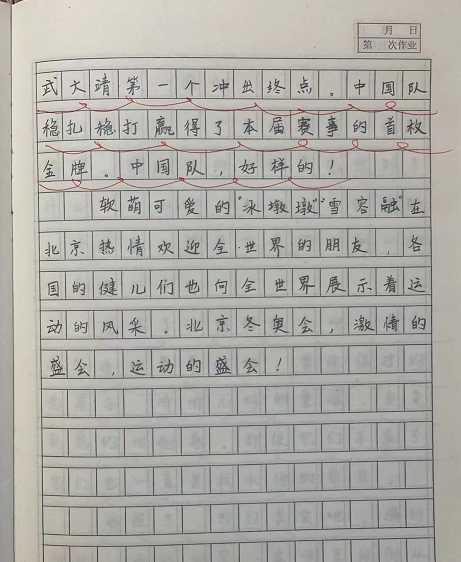 月 日
第 次作业
武大靖第一个冲出终点。中国队
稳扎稳打赢得了本届赛事的首枚
金牌。中国队，好样的！
软萌可爱的“冰墩墩”“雪容融”在
北京热情欢迎全世界的朋友，各
国的健儿们也向全世界展示着运
动的风采。北京冬奥会，激情的
盛会，运动的盛会！